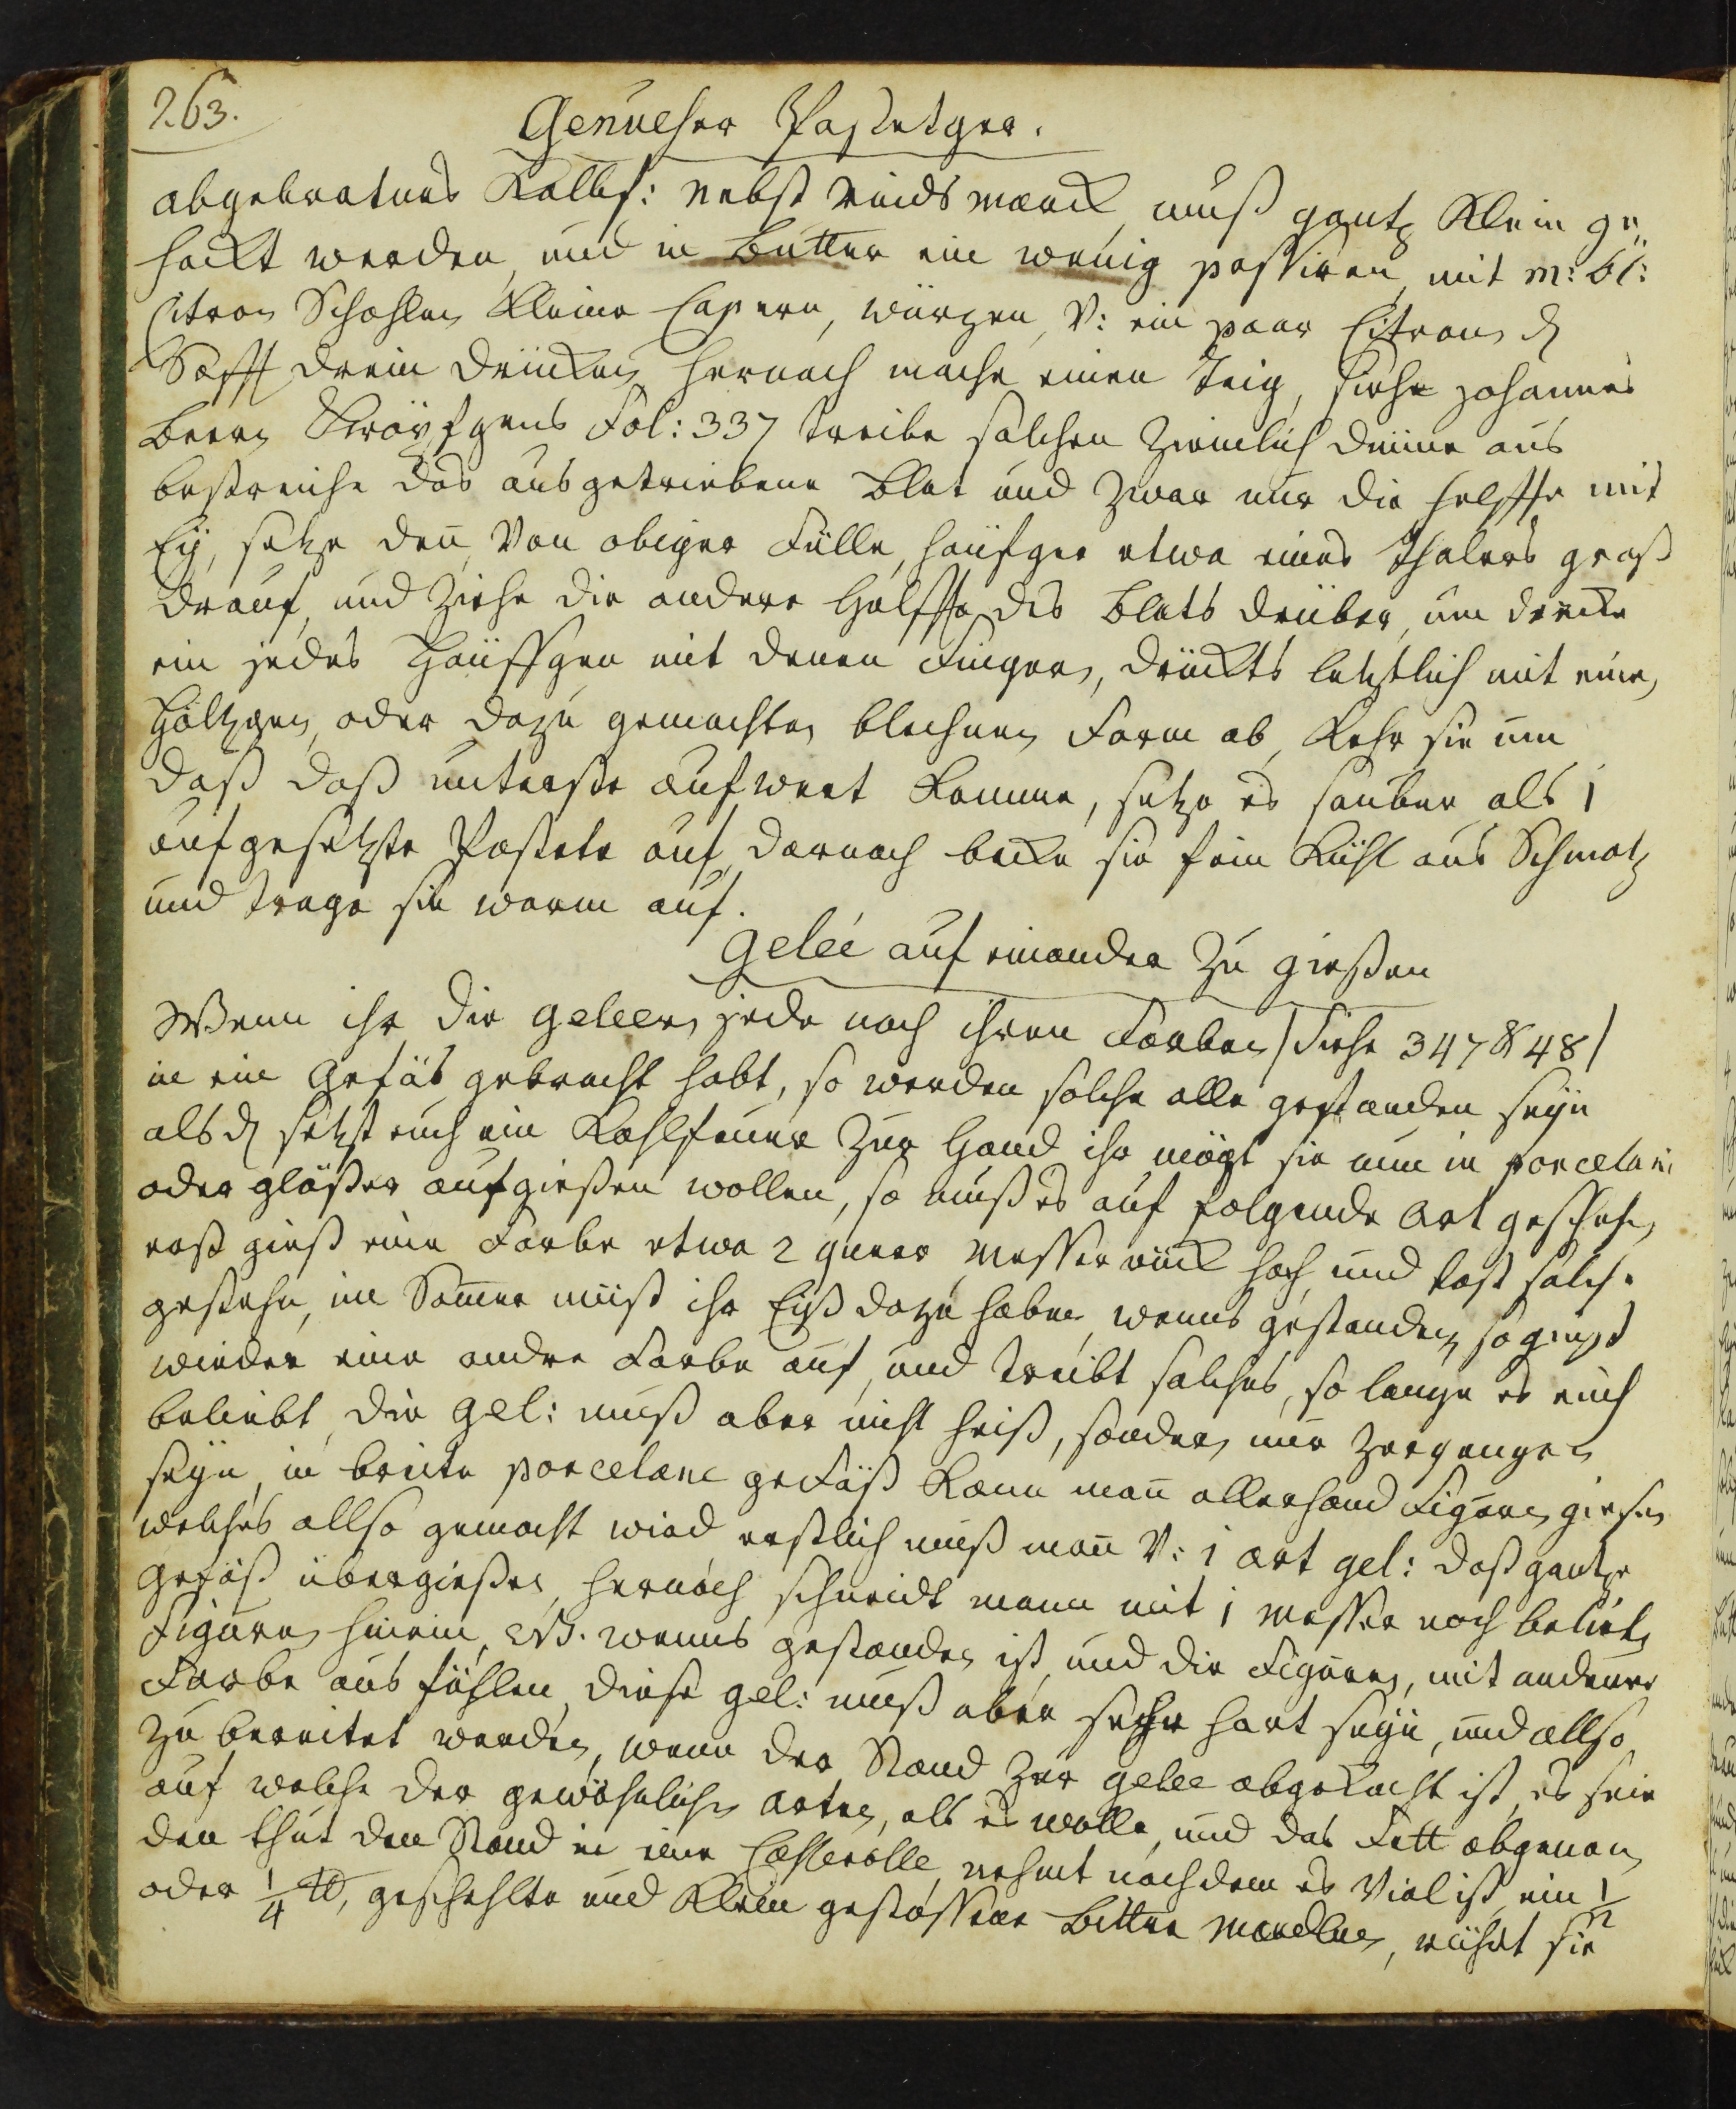 263.
Genueser Pastetger.
abgebratnes Kalbf: nebst rinds marck muß gantz klein ge„
hackt werden, und in Butter ein wenig passiren, mit m: bl:
Citron Schahlen kleine Capern, würgen, v: ein paar Citronen
Safft drein drücken hernach mache einen Teig, siehe Johannes
beern Fol: 337 treibe solchen ziemlich dünne aus
bestreiche das ausgetriebene Blat und zwar nur die helffte mit
Eÿ, setze den von obiger Fülle, häufger etwa eines Thalers groß
drauf, und ziehe die andere Hälffte des Blats drüber, um drucke
ein jedes Häuffgen mit denen Fingern, drückts letztlich mit einen
Höltzgen, oder dazu gemachten blechnen Form ab, kehr sie um
daß daß unterste aufwert komme, setze es sauber als 1
aufgesetzte Pastete auf, darnach backe sie fein kühl aus Schmaltz
und trage sie warm auf.
Geleé auf einander zu gießen
Wenn ihr die Geleen jede nach ihren Farben /siehe 347 & 48/
in ein Gefäs gebracht habt, so werden solche alle gestanden seÿn
alsden setzt euch ein Kohlfeuer zur Hand ihr mögt sie nun in porcelain
oder gläßer aufgießen wollen, so muß es auf folgende Art geschehen,
erst gießt eine Farbe etwa 2 queer Messer rück hoch, und last solche
gestehn, im Sommer müst ihr Eiß dazu haben, wenns gestanden so giest
wieder eine andre Farbe auf, und treibt solches, so lange es euch
beliebt, die Gel: muß aber nicht heiß, sondern nur zergangen
seÿn, in breite porcelane gefäß kann man allerhand Figuren giesen
welches allso gemacht wird erstlich muß man v: 1 art gel: daß gantze
Gefäß übergießen, hernach schneidt mann mit 1 messer nach belieben
Figuren hinein, NB. wenns gestanden ist, und die Figuren, mit anderer
Farbe aus fühlen, diese gel: muß aber sehr hart seÿn, und allso
zu bereitet werden, wenn der Stand zur gelee abgekocht ist, es seie
auf welche der gewöhnlichen arten, als es wolle, und das Fett abgenom̄en
den thut den Stand in eine Casserolle, nehmt nachdem es viel ist, ein 1/2
oder 1/4 ℔, geschehlte und klein gestossene bittre Mandlen, rührt sie